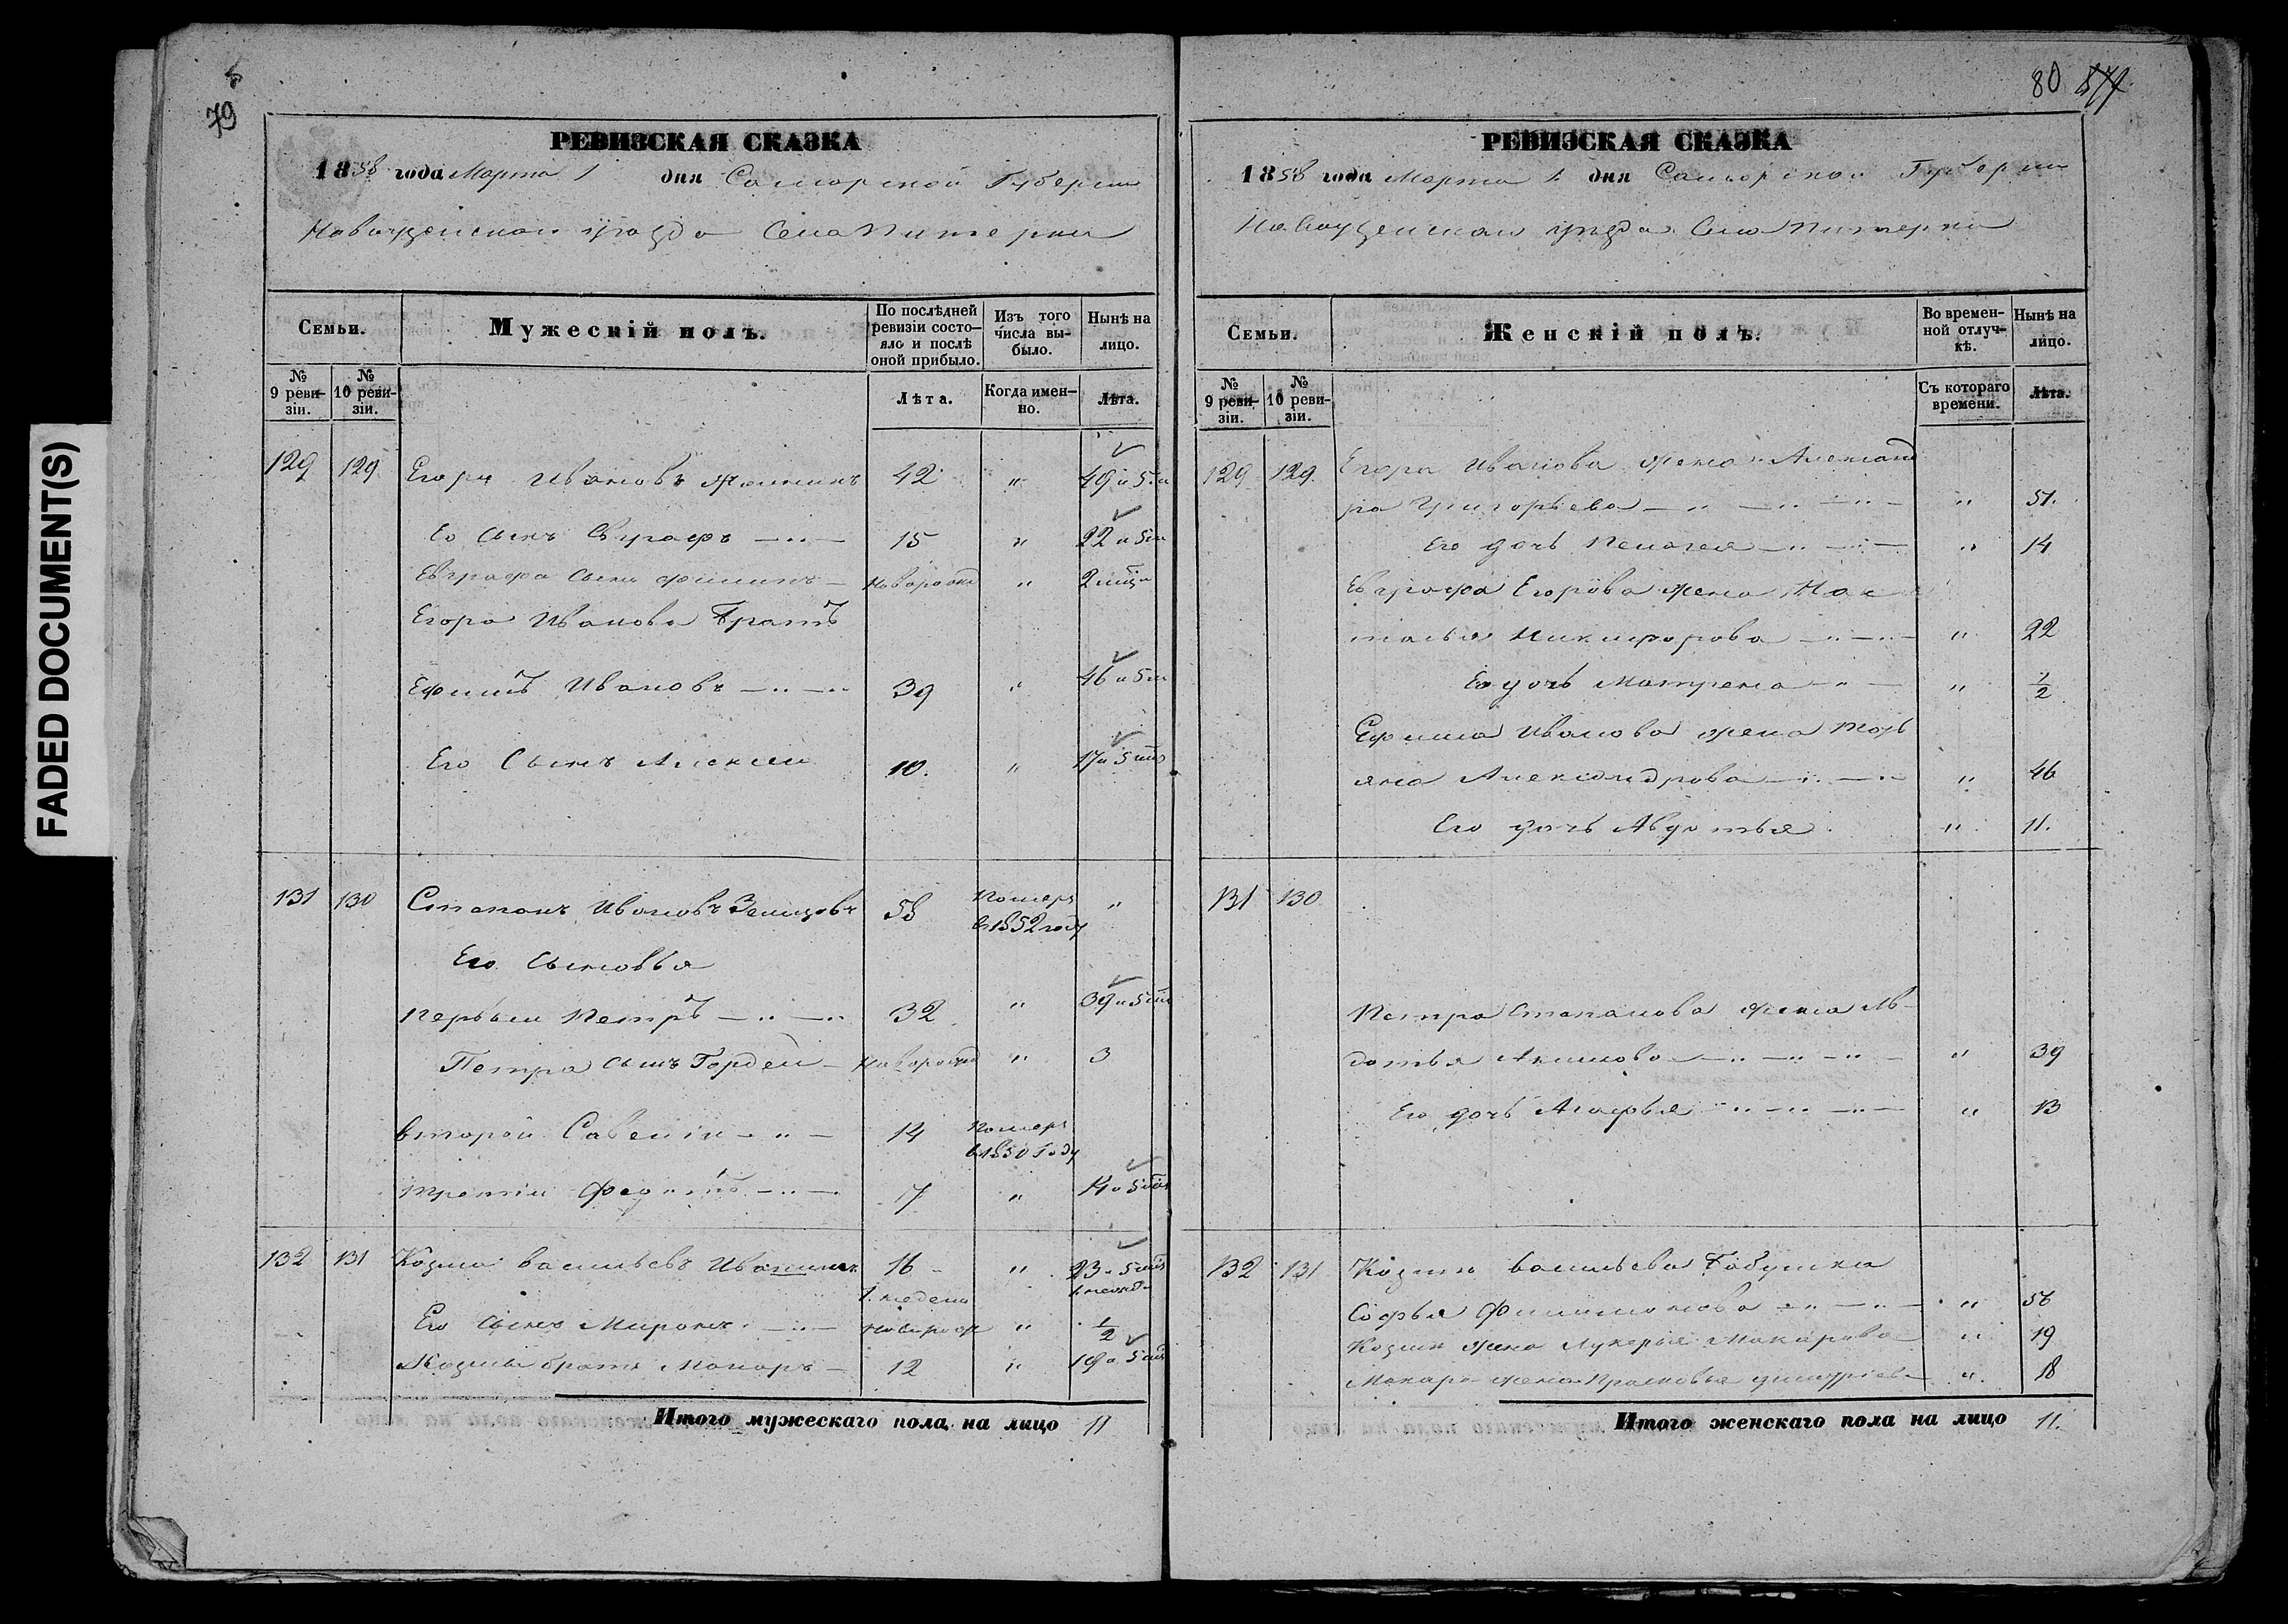 FADED DOCUMENT(S)
79
РЕВИЗСКАЯ СКАЗКА
1858 года Марта 1 дня Самарской Губернии
Новоузенскаго уезда Села Питерки
Семьи.
Мужескій полъ.
По послѣдней ревизіи состояло и послѣ оной прибыло.
Изъ того числа выбыло.
Нынѣ на лицо.
№ 9 ревизіи.
№ 10 ревизіи.
Лѣта.
Когда именно.
Лѣта.
129 129 Егоръ Ивановъ 42 " 49 и 5 м
Ео сынъ Евграфъ 15 " 22 и 5 м
Евграфа сынъ Филипъ Новорожд " 2 мѣц
Егора Иванова Братъ
Ефимъ Ивановъ 39 " 46 и 5 м
Его Сынъ Алексей 10. " 17 и 5 мѣс
131 130 Степанъ Ивановъ 58 Померъ в 1852 году "
Его сыновья
Первый Петръ 32 " 39 и 5 мѣс
Петра сынъ Гордей Новорожд " 3
второй Савелій 14 Померъ в 1850 Году
третій Федотъ 7 " 14 и 5 мѣс
132 131 Козма Васильевъ 16 " 23 и 5 мѣс
1. недели
Его Сынъ Миронъ Новорож " 1/2
Козмы братъ Макаръ 12 " 19 и 5 мѣс
Итого мужескаго пола на лицо 11
80
РЕВИЗСКАЯ СКАЗКА
1858 года Марта 1. дня Самарской Губернии
Новоузенскаго уезда Села Питерки
Семьи.
Женскій полъ.
Во временной отлучкѣ.
Нынѣ на лицо.
№ 9 ревизіи.
№ 10 ревизіи.
Съ котораго времени.
Лѣта.
129 129. Егора Иванова жена Александ
ра Григорьева " 51.
Его дочь Пелагея " 14
Евграфа Егорова жена Нас
тасья Никифорова " 22
Ео дочь Матрена " 1/2
Ефима Иванова жена Тать
яна Александрова " 46
Его дочь Авдотья " 11.
131 130
Петра Степанова жена Ав-
дотья Акимова " 39
Его дочь Агафья " 13
132 131 Козмы Васильева Бабушка
Софья Филимонова " 58
Козмы жена Лукерья Макарова " 19
Макара жена Прасковья Дмитріев " 18
Итого женскаго пола на лицо 11.